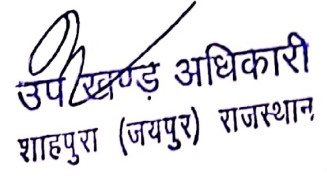 उपखण्ड़ अधिकारी
शाहपुरा (जयपुर) राजस्थान